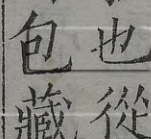 也從
包藏